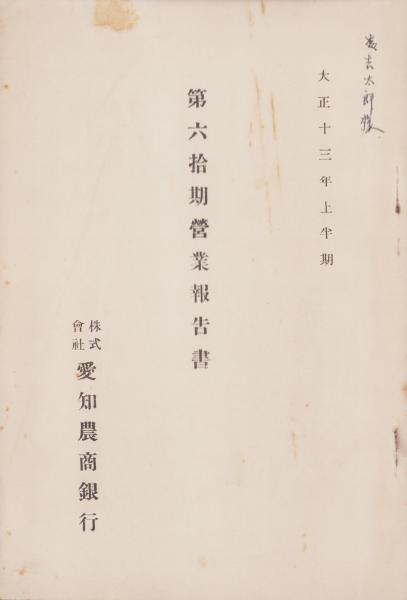 吉太郎様
大正十三年上半期
第六拾期營業報告書
株式會社愛知農商銀行